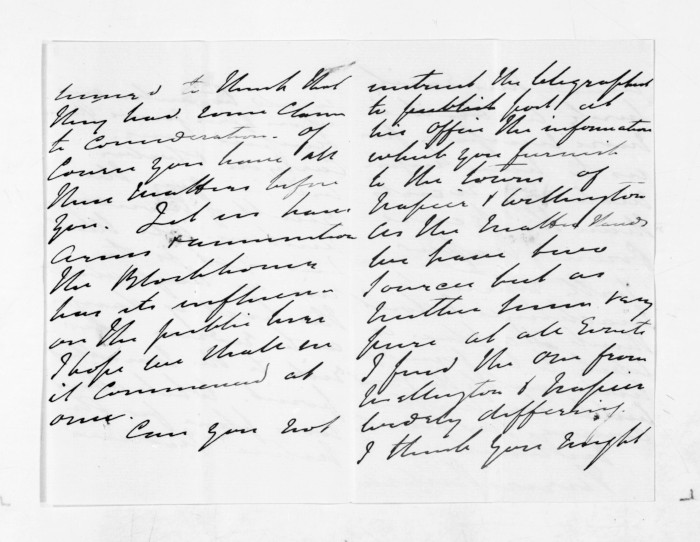 to think that
they had some claim
to consideration. Of
course you have all
these matters before
you. Let us have
arms & ammunition
The Blockhouse
has its influence
on the public here
I hope we shall see
it commenced at
once.
Can you not
instruct the telegraphist
to publish post at
his office the information
which you furnish
to the towns of
Napier & Wellington
As the matter stands
we have two
sources but as
neither seem very
pure at all events
I find the one from
Wellington & Napier
widely differing.
I think you might